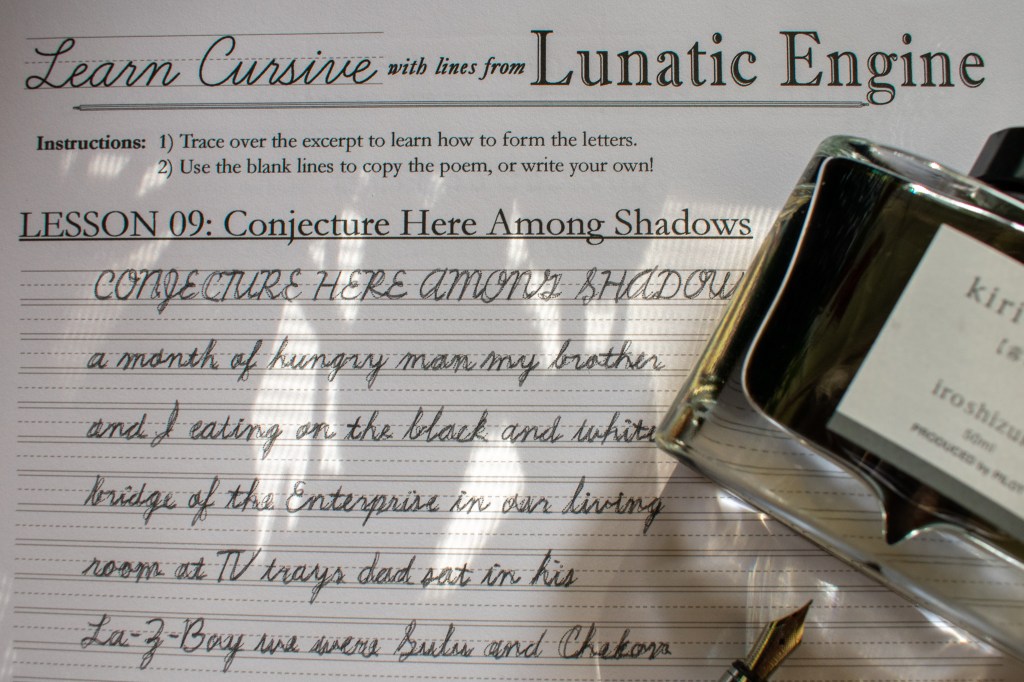 Learn Cursive with lines from Lunatic Engine
Instructions: 1) Trace over the excerpt to learn how to form the letters.
2) Use the blank lines to copy the poem, or write your own!
LESSON 09: Conjecture Here Among Shadows
CONJECTURE HERE AMONG SHADOW
a month of hungry man my brother
and I eating on the black and white
bridge of the Enterprise in our living
room at TV trays dad sat in his
La-Z-Boy we were Sulu and Chekov
kiri
iroshizu
50ml
PRODUCED by PILOT